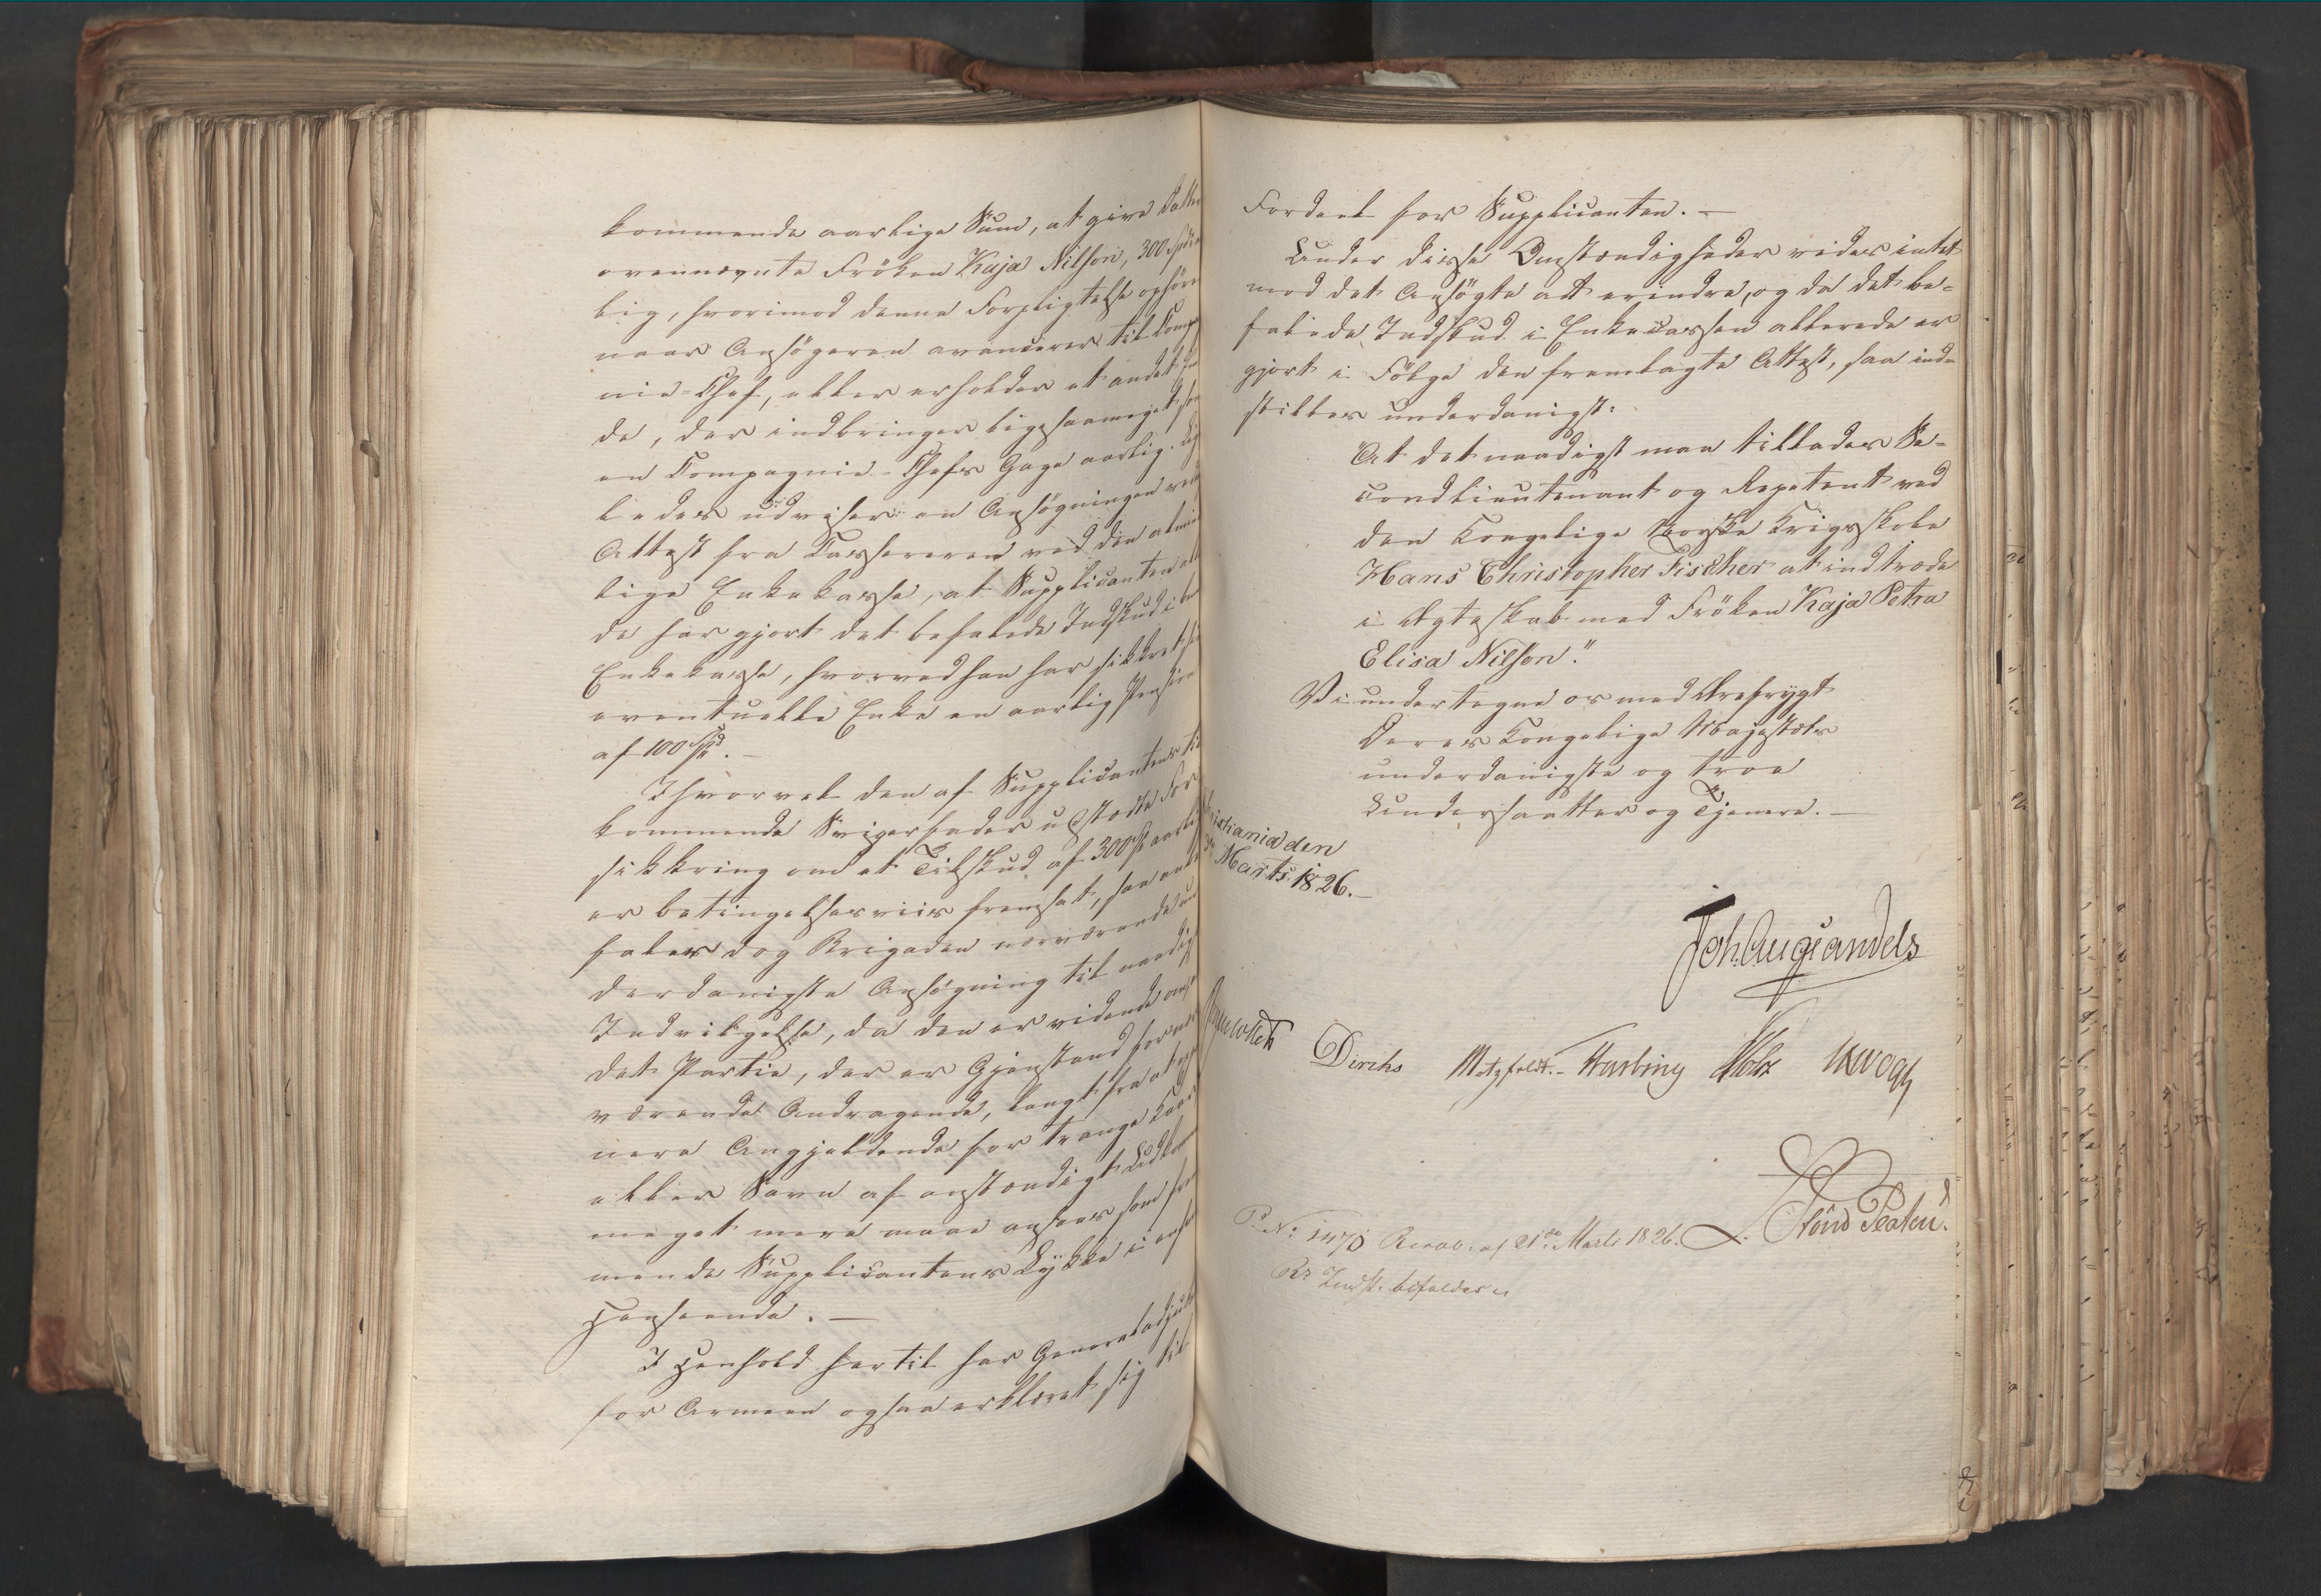 kommende aarlige Sum, at give
ovennævnte Fröken Kaja Nilson, 300
lig, hvorimod denne Forpligtelse ophörer
naar Ansögeren avancerer til Compag
nie-Chef, eller erholder et andet
de, der indbringer ligesaameget som
en Compagnie-Chefs Gage aarlig.
ledes udviser en Ansögningen
Attest fra Kassereren ved den almin
lige Enkekasse, at Supplicanten
de har gjort det befalede Indskud i
Enkekasse, hvorved han har sikkret sin
eventuelle Enke en aarlig Pension
af 100 Spd. —
Ihvorvel den af Supplicantens til
kommende Svigerfader udstædte For
sikkring om et Tilskud af 300 aarlig
er betingelsesviis fremsat, saa anbe
faler dog Brigaden nærværende un
derdanigste Ansögning til naadigst
Indvilgelse, da den er vidende om
det Partie, der er Gjenstand for nær
værende Andragende, langt fra at
nere Angjeldende for trange Kaar
eller Savn af anstændigt Udkomme
meget mere maae ansees som frem
mende Supplicantens Lykke i
Henseende. —
I Henhold hertil har Generaladjut
for Armeen ogsaa erklæret sig til
Fordeel for Supplicanten. —
Under disse Omstændigheder vides intet
mod det Ansögte att erindre, og da det be-
falede Indskud i Enkecassen allerede er
gjort i Fölge den fremlagte Attest, saa ind-
stilles underdanigst:
"At det naadigst maa tillades Se-
condlieutenant og Repetent ved
den Kongelige Norske Krigsskole
Hans Christopher Fischer at indtræde
i Ægteskab med Fröken Kaja Petra
Elisa Nilson."
Vi undertegne os med Ærefrygt
Deres Kongelige Majestæts
underdanigste og troe
Undersaatter og Tjenere. —
Christiania den
Marts 1826. —
Joh. Aug. Sandels
Collett Diriks Motzfeldt. Krebs JHVogt
P. No 1470 Resol. af 21de Marts 1826.
Rs Indst. bifaldes